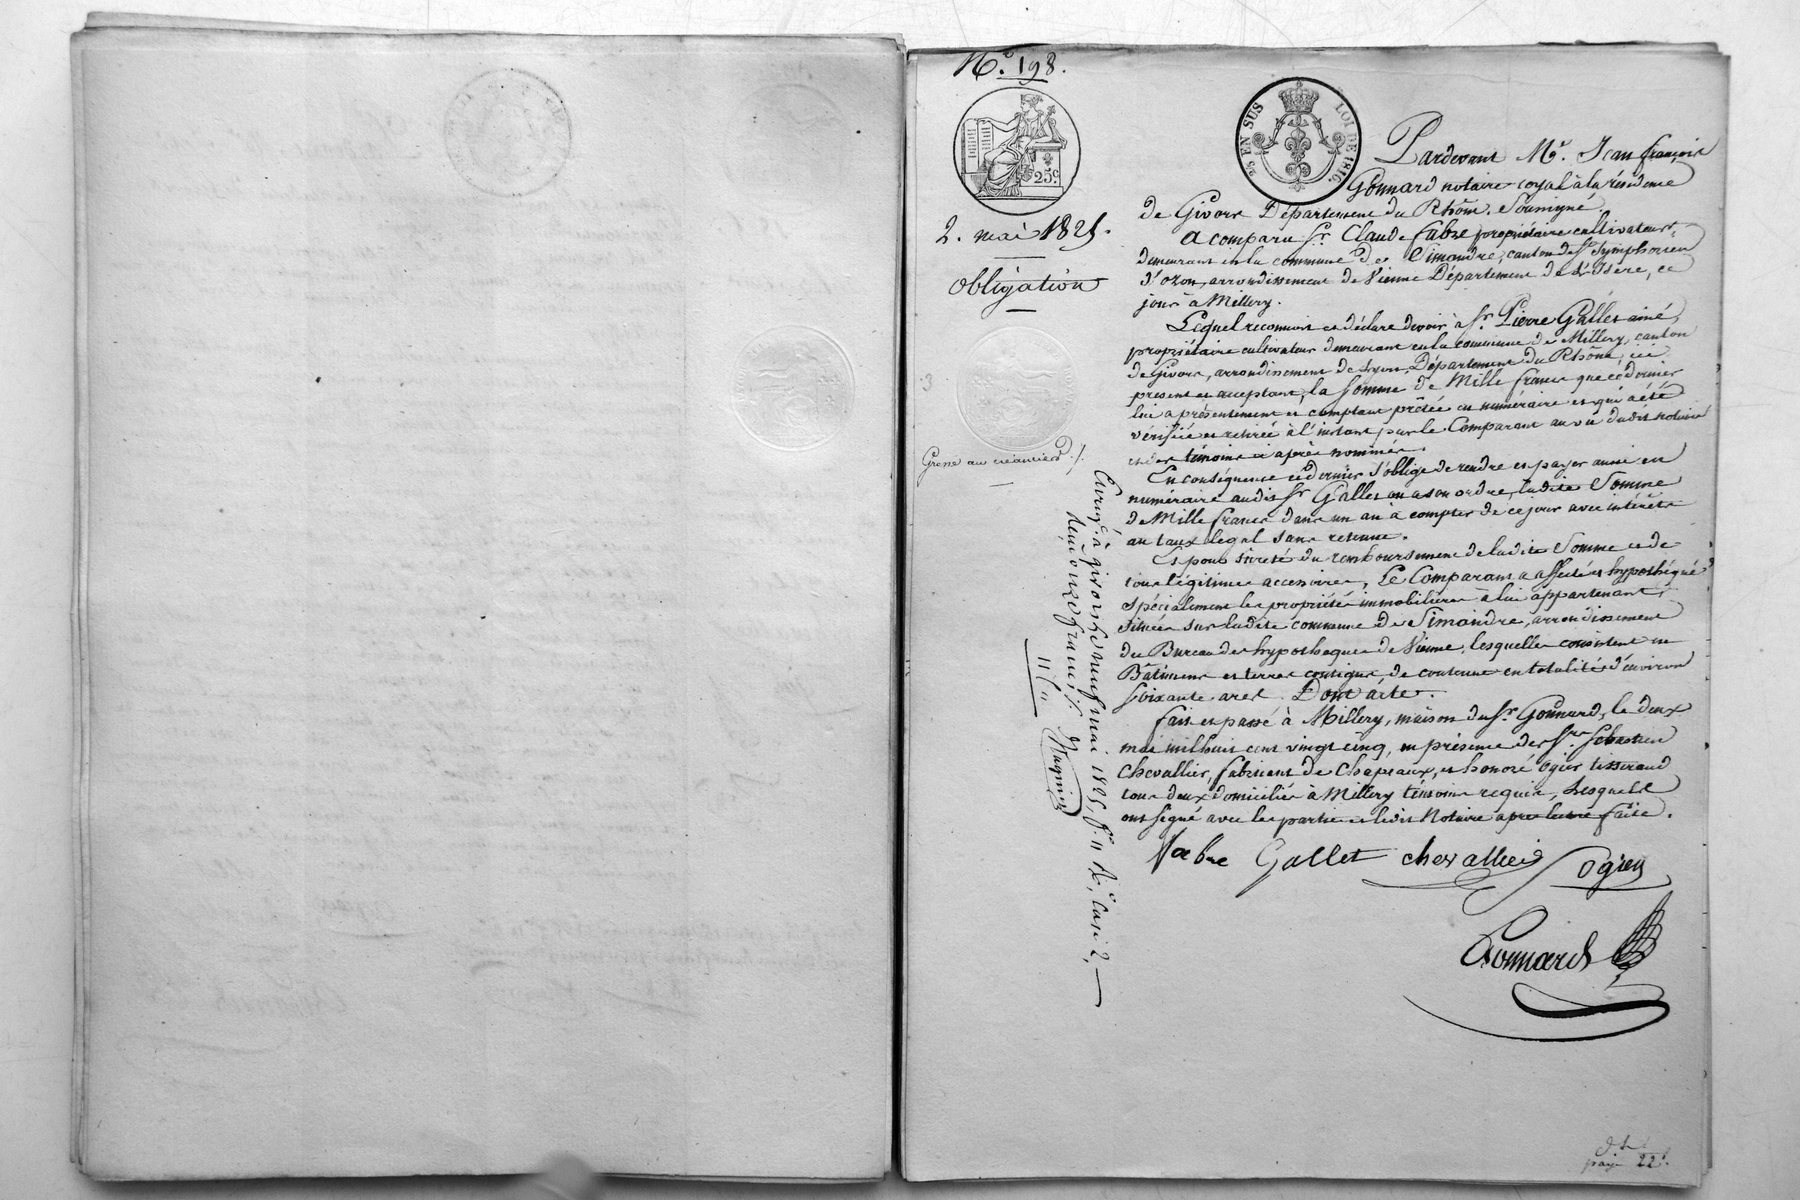 N.o 198.
25.c
25 EN SUS LOI DE 1816.
2. mai 1825.
Obligation
Grosse au créancier./.
Pardevant M.e Jean françois
Gonnard notaire royal à la résidence
de Givors Département du Rhône, Soussigné.
A comparu S.r Claude Fabre propriétaire cultivateur,
demeurant en la commune de Simandre, canton de S.t Symphorien
d'ozon, arrondissement de Vienne Département de L'Isère, ce
jour à Millery.
Lequel reconnoit et déclare devoir à S.r Pierre Gallet ainé,
propriétaire cultivateur demeurant en la commune de Millery, canton
de Givors, arrondissement de Lyon, Département du Rhône, ici
présent et acceptant, la somme de Mille francs que ce dernier
lui a présentement et comptant prêtée en numéraire et qui a été
vérifiée et retirée à l'instant par le Comparant au vu dudit notaire
et des témoins ci après nommés.
En conséquence ce dernier s'oblige de rendre et payer aussi en
numéraire audit S.r Gallet ou a son ordre, ladite Somme
de Mille francs dans un an à compter de ce jour avec intérêts
au taux légal sans retenue.
Et pour sûreté du remboursement de ladite Somme et de
tous légitimes accessoires, Le Comparant a affecté et hypothéqué
spécialement les propriétés immobilières à lui appartenant,
situées sur ladite commune de Simandre, arrondissement
du Bureau des hypothèques de Vienne, lesquelles consistent en
Bâtimens et terres contigus, de contenue en totalité d'environ
soixante ares. Dont acte.
fait et passé à Millery, maison du S.r Gonnard, le deux
mai mil huit cent vingt cinq, en présence des S.rs Sébastien
Chevallier, fabricant de Chapeaux, et honoré Ogier tisserand
tous deux domiciliés à Millery témoins requis, Lesquels
ont signé avec les parties et ledit Notaire après lecture faite.
Fabre Gallet chevallier Ogier
Gonnard
Enreg.é à givors le neuf mai 1825, f.o 11 R.o, case 2,
reçu onze francs
11 f.
page 22